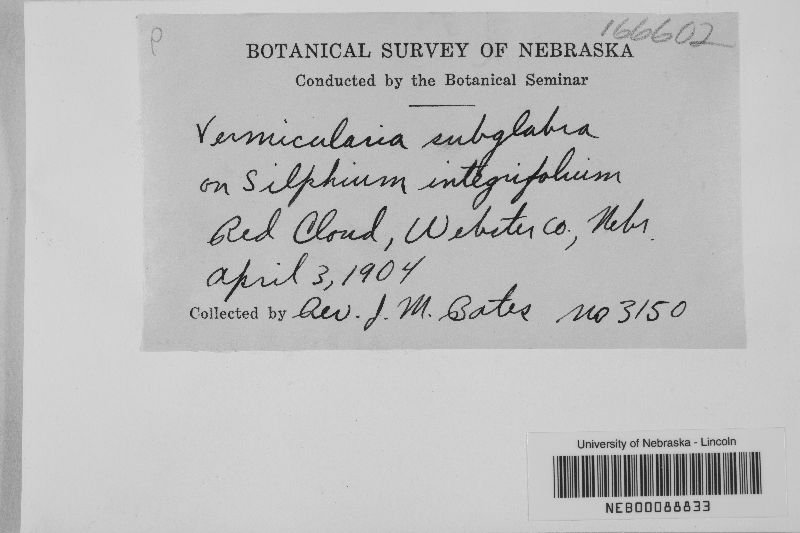 P
166602
BOTANICAL SURVEY OF NEBRASKA
Conducted by the Botanical Seminar
Vermicularia subglabra
on Silphium integrifolium
Red Cloud, Webster co., Nebr.
April 3, 1904
Collected by Rev. J. M. Bates no 3150
University of Nebraska - Lincoln
NEB00088833